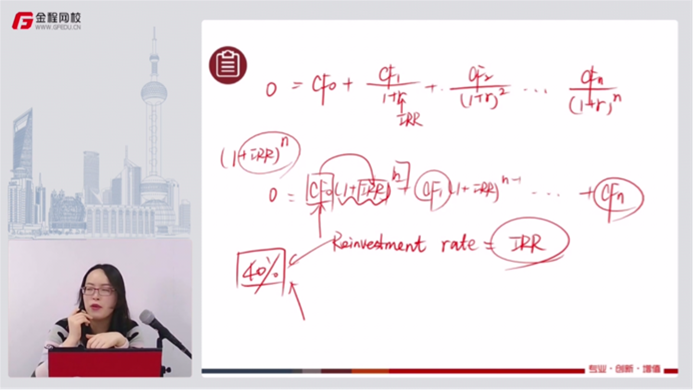 金程网校
WWW.GFEDU.CN
0 = CF₀ + CF₁/(1+r) + CF₂/(1+r)² ... CFₙ/(1+r)ⁿ
IRR
(1+IRR)ⁿ
0 = CF₀(1+IRR)ⁿ + CF₁(1+IRR)ⁿ⁻¹ ... + CFₙ
Reinvestment rate = IRR
40%
专业·创新·增值